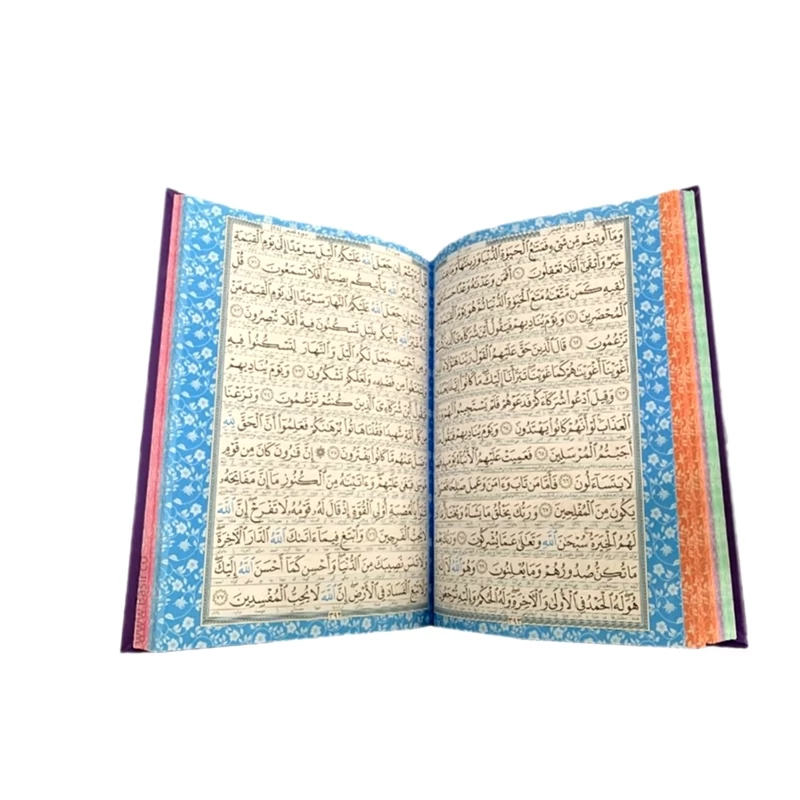 وَمَآ أُوتِيتُم مِّن شَىْءٍ فَمَتَٰعُ ٱلْحَيَوٰةِ ٱلدُّنْيَا وَزِينَتُهَا وَمَا
خَيْرٌ وَأَبْقَىٰٓ أَفَلَا تَعْقِلُونَ ٦٠ أَفَمَن وَعَدْنَٰهُ وَعْدًا حَسَنًا
لَٰقِيهِ كَمَن مَّتَّعْنَٰهُ مَتَٰعَ ٱلْحَيَوٰةِ ٱلدُّنْيَا ثُمَّ هُوَ يَوْمَ
ٱلْمُحْضَرِينَ ٦١ وَيَوْمَ يُنَادِيهِمْ فَيَقُولُ أَيْنَ شُرَكَآءِىَ
تَزْعُمُونَ ٦٢ قَالَ ٱلَّذِينَ حَقَّ عَلَيْهِمُ ٱلْقَوْلُ رَبَّنَا هَٰٓؤُلَآءِ
أَغْوَيْنَآ أَغْوَيْنَٰهُمْ كَمَا غَوَيْنَا تَبَرَّأْنَآ إِلَيْكَ مَا كَانُوٓا۟
٦٣ وَقِيلَ ٱدْعُوا۟ شُرَكَآءَكُمْ فَدَعَوْهُمْ فَلَمْ يَسْتَجِيبُوا۟ لَهُمْ
ٱلْعَذَابَ لَوْ أَنَّهُمْ كَانُوا۟ يَهْتَدُونَ ٦٤ وَيَوْمَ يُنَادِيهِمْ فَيَقُولُ
أَجَبْتُمُ ٱلْمُرْسَلِينَ ٦٥ فَعَمِيَتْ عَلَيْهِمُ ٱلْأَنۢبَآءُ يَوْمَئِذٍ
لَا يَتَسَآءَلُونَ ٦٦ فَأَمَّا مَن تَابَ وَءَامَنَ وَعَمِلَ صَٰلِحًا
يَكُونَ مِنَ ٱلْمُفْلِحِينَ ٦٧ وَرَبُّكَ يَخْلُقُ مَا يَشَآءُ وَيَخْتَارُ
لَهُمُ ٱلْخِيَرَةُ سُبْحَٰنَ ٱللَّهِ وَتَعَٰلَىٰ عَمَّا يُشْرِكُونَ ٦٨ وَرَبُّكَ يَعْلَمُ
مَا تُكِنُّ صُدُورُهُمْ وَمَا يُعْلِنُونَ ٦٩ وَهُوَ ٱللَّهُ لَآ
هُوَ لَهُ ٱلْحَمْدُ فِى ٱلْأُولَىٰ وَٱلْءَاخِرَةِ وَلَهُ ٱلْحُكْمُ وَإِلَيْهِ تُرْجَعُونَ
إِن جَعَلَ ٱللَّهُ عَلَيْكُمُ ٱلَّيْلَ سَرْمَدًا إِلَىٰ يَوْمِ ٱلْقِيَٰمَةِ
ٱللَّهِ يَأْتِيكُم بِضِيَآءٍ أَفَلَا تَسْمَعُونَ ٧١ قُلْ
جَعَلَ ٱللَّهُ عَلَيْكُمُ ٱلنَّهَارَ سَرْمَدًا إِلَىٰ يَوْمِ ٱلْقِيَٰمَةِ مَنْ
ٱللَّهِ يَأْتِيكُم بِلَيْلٍ تَسْكُنُونَ فِيهِ أَفَلَا تُبْصِرُونَ ٧٢
جَعَلَ لَكُمُ ٱلَّيْلَ وَٱلنَّهَارَ لِتَسْكُنُوا۟ فِيهِ
مِن فَضْلِهِۦ وَلَعَلَّكُمْ تَشْكُرُونَ ٧٣ وَيَوْمَ يُنَادِيهِمْ
أَيْنَ شُرَكَآءِىَ ٱلَّذِينَ كُنتُمْ تَزْعُمُونَ ٧٤ وَنَزَعْنَا
مِن كُلِّ أُمَّةٍ شَهِيدًا فَقُلْنَا هَاتُوا۟ بُرْهَٰنَكُمْ فَعَلِمُوٓا۟ أَنَّ ٱلْحَقَّ لِلَّهِ
عَنْهُم مَّا كَانُوا۟ يَفْتَرُونَ ٧٥ إِنَّ قَٰرُونَ كَانَ مِن قَوْمِ
مُوسَىٰ فَبَغَىٰ عَلَيْهِمْ وَءَاتَيْنَٰهُ مِنَ ٱلْكُنُوزِ مَآ إِنَّ مَفَاتِحَهُۥ
بِٱلْعُصْبَةِ أُو۟لِى ٱلْقُوَّةِ إِذْ قَالَ لَهُۥ قَوْمُهُۥ لَا تَفْرَحْ إِنَّ ٱللَّهَ
لَا يُحِبُّ ٱلْفَرِحِينَ ٧٦ وَٱبْتَغِ فِيمَآ ءَاتَىٰكَ ٱللَّهُ ٱلدَّارَ ٱلْءَاخِرَةَ
وَلَا تَنسَ نَصِيبَكَ مِنَ ٱلدُّنْيَا وَأَحْسِن كَمَآ أَحْسَنَ ٱللَّهُ إِلَيْكَ
وَلَا تَبْغِ ٱلْفَسَادَ فِى ٱلْأَرْضِ إِنَّ ٱللَّهَ لَا يُحِبُّ ٱلْمُفْسِدِينَ ٧٧
٣٩٤